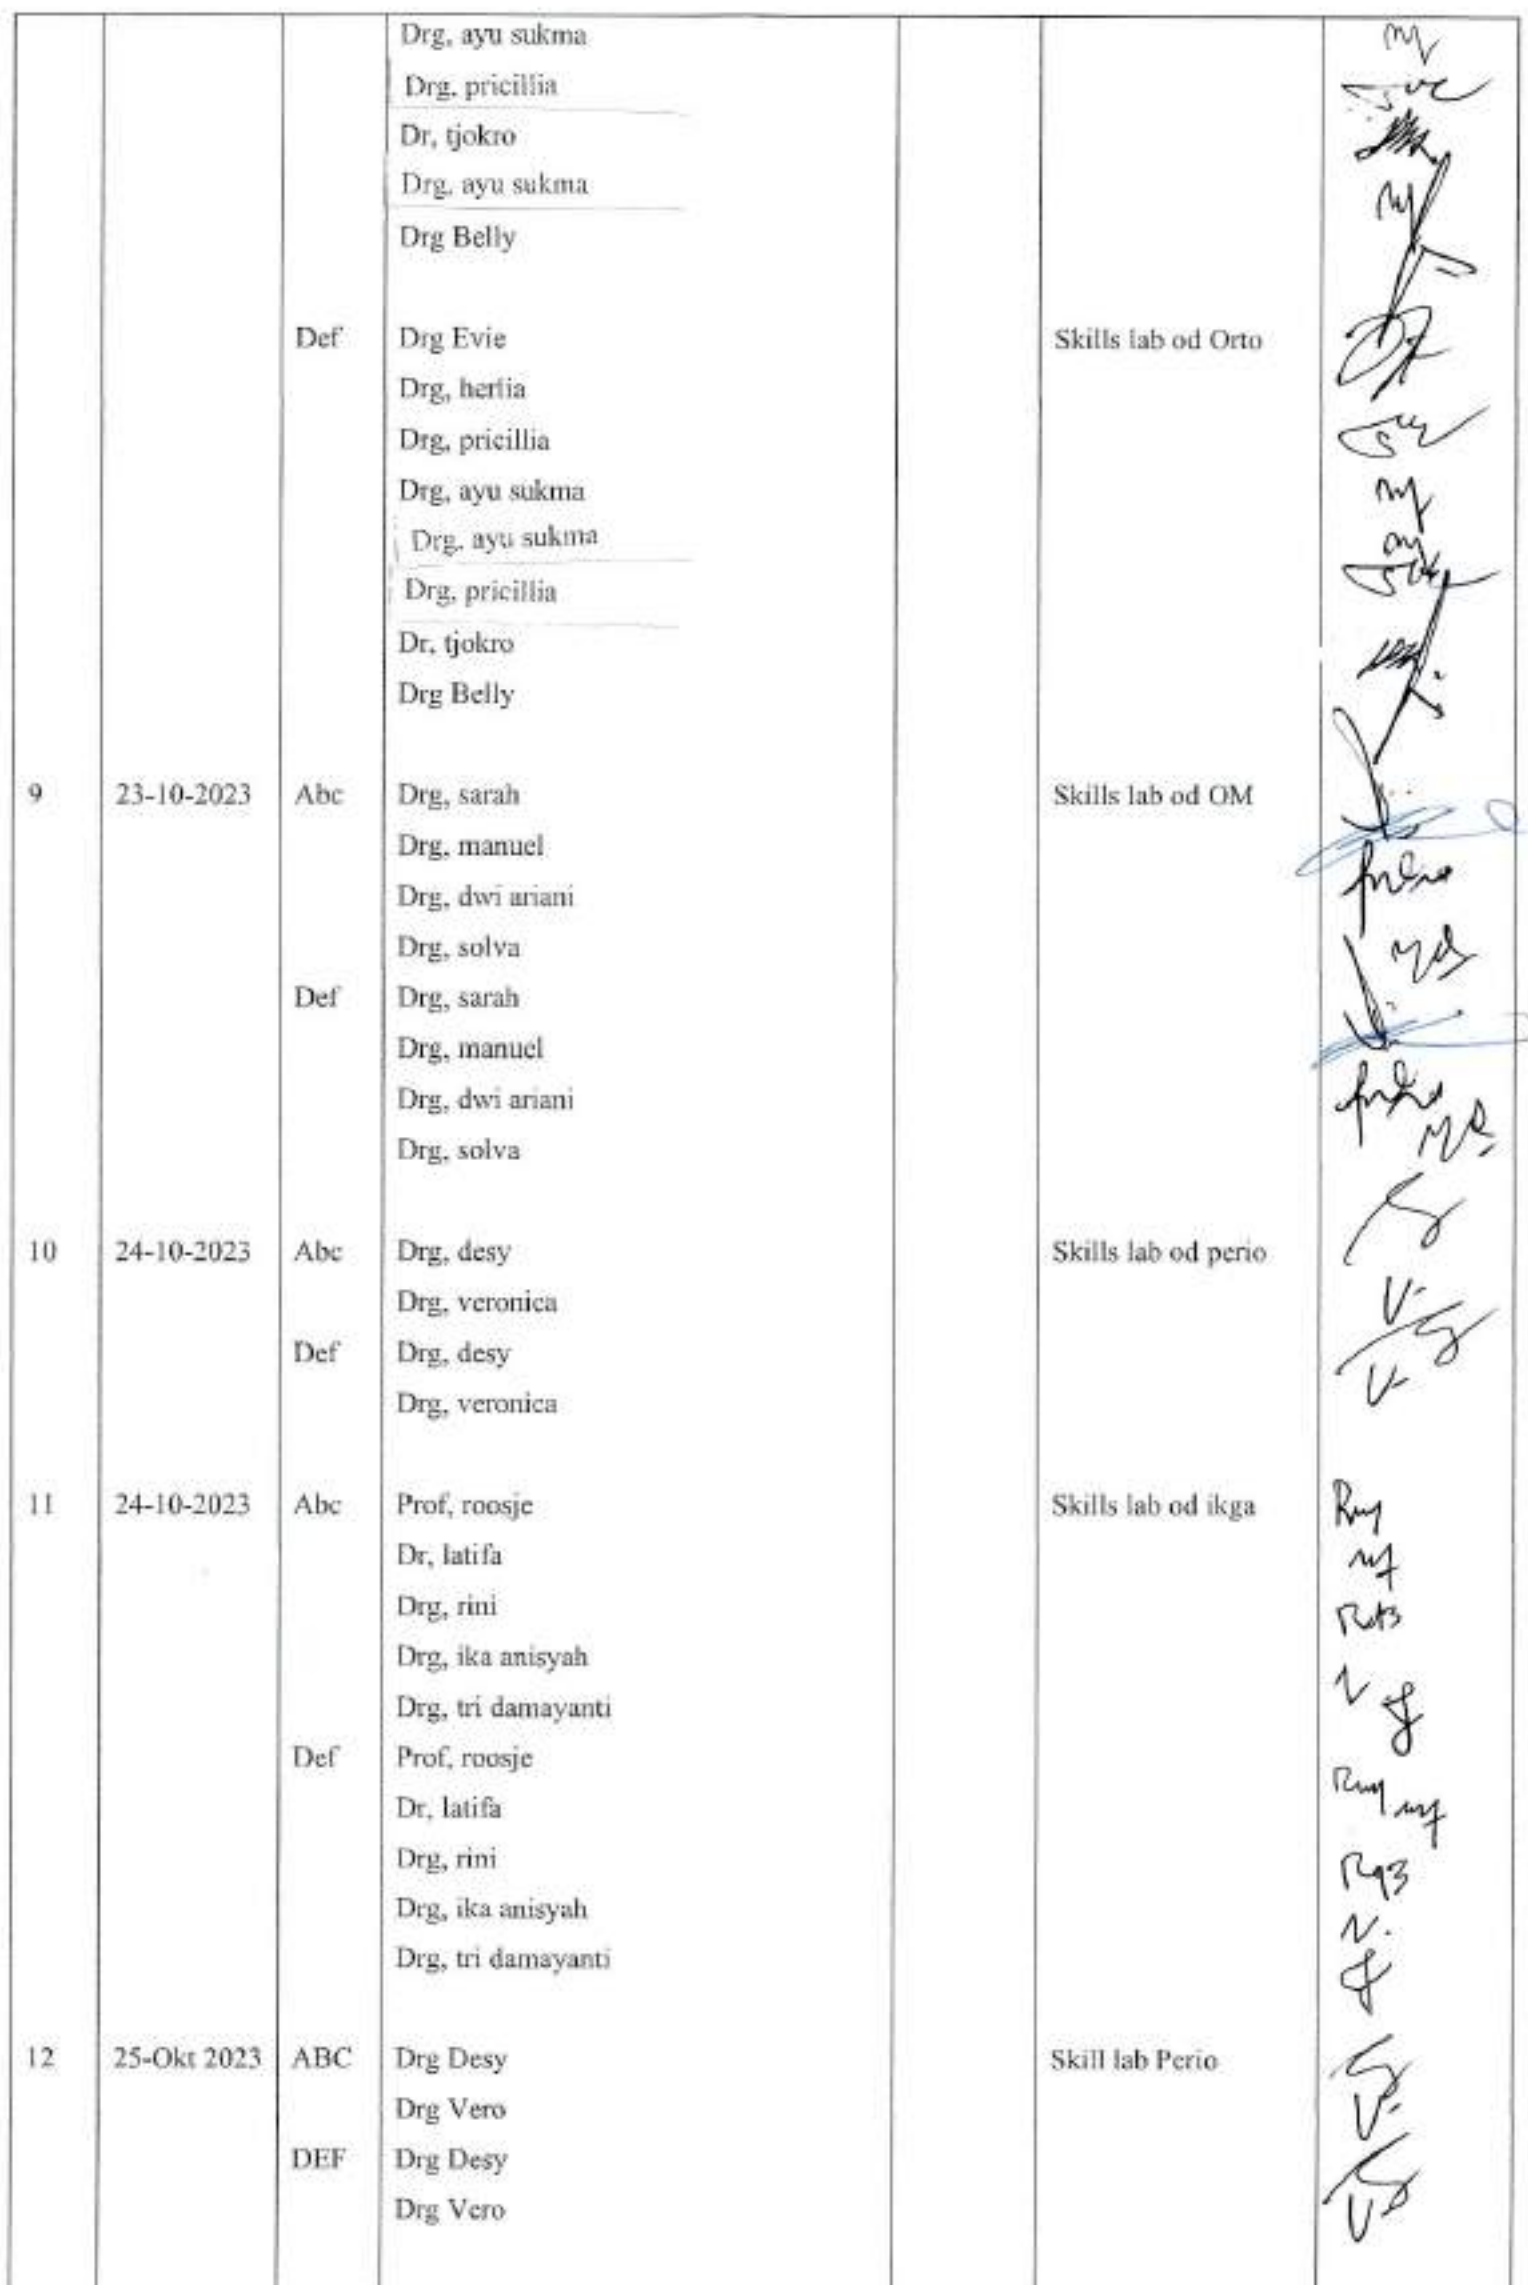 Drg, ayu sukma
Drg, pricillia
Dr, tjokro
Drg, ayu sukma
Drg Belly
Def Drg Evie Skills lab od Orto
Drg, herlia
Drg, pricillia
Drg, ayu sukma
Drg, ayu sukma
Drg, pricillia
Dr, tjokro
Drg Belly
9 23-10-2023 Abc Drg, sarah Skills lab od OM
Drg, manuel
Drg, dwi ariani
Drg, solva
Def Drg, sarah
Drg, manuel
Drg, dwi ariani
Drg, solva
10 24-10-2023 Abc Drg, desy Skills lab od perio
Drg, veronica
Def Drg, desy
Drg, veronica
11 24-10-2023 Abc Prof, roosje Skills lab od ikga
Dr, latifa
Drg, rini
Drg, ika anisyah
Drg, tri damayanti
Def Prof, roosje
Dr, latifa
Drg, rini
Drg, ika anisyah
Drg, tri damayanti
12 25-Okt 2023 ABC Drg Desy Skill lab Perio
Drg Vero
DEF Drg Desy
Drg Vero